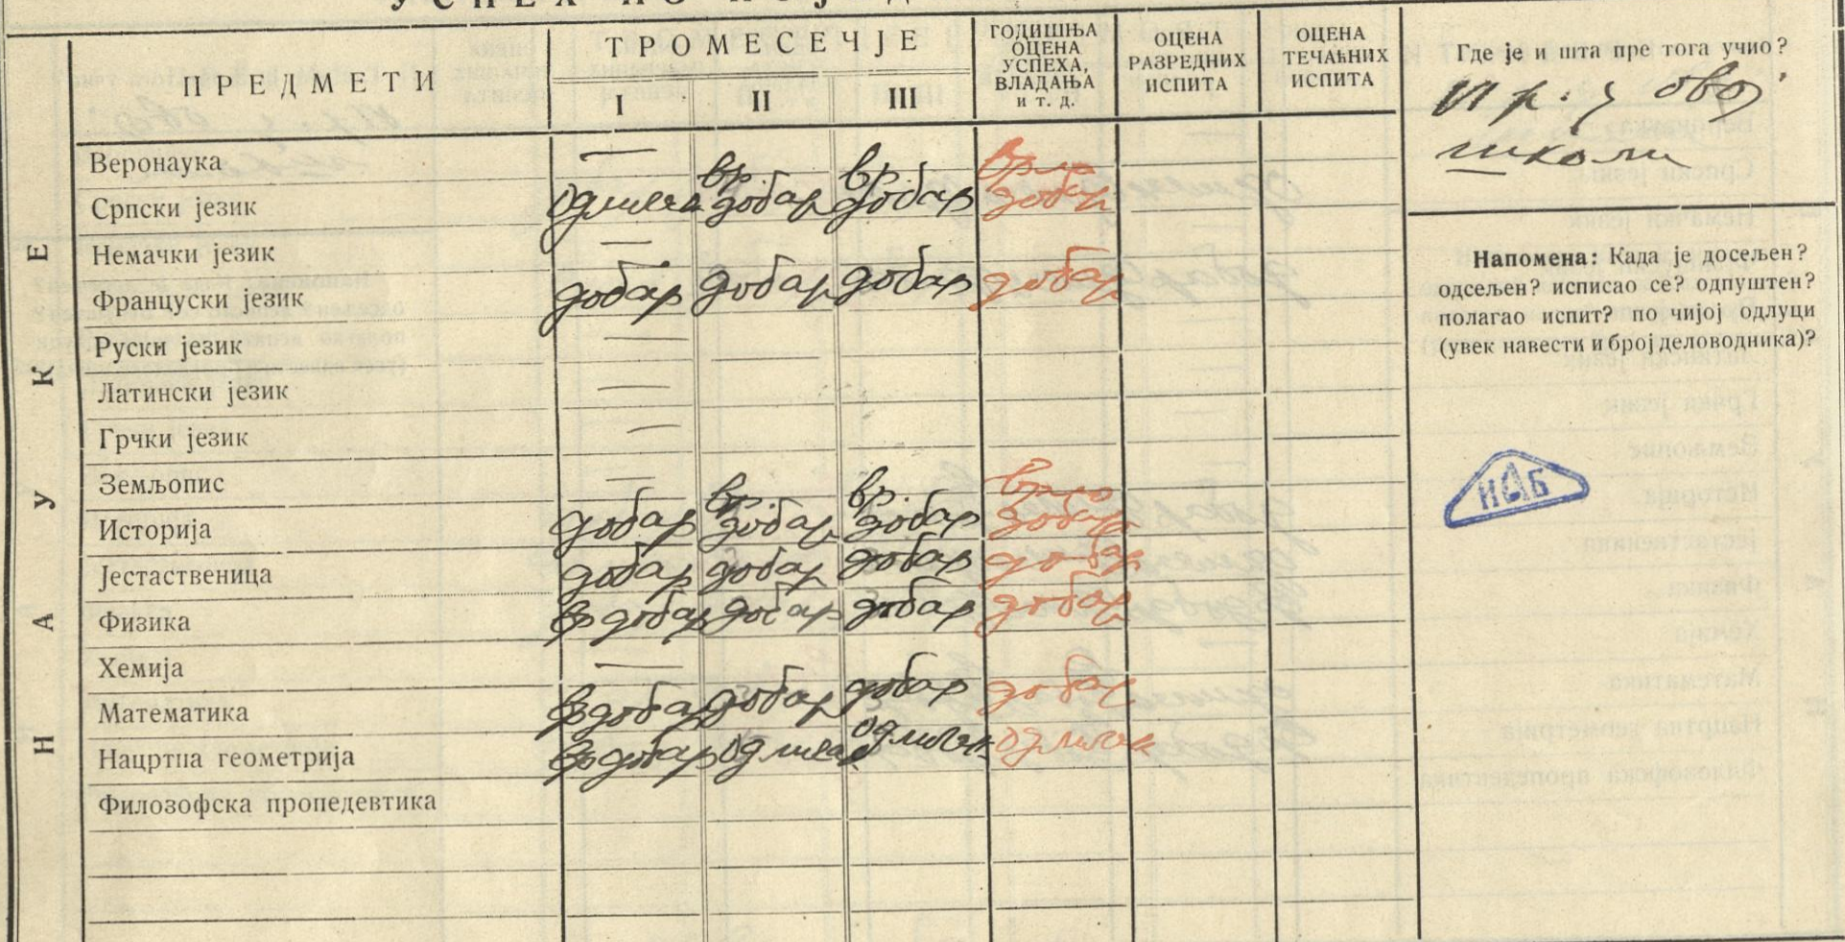 ПРЕДМЕТИ
ТРОМЕСЕЧЈЕ
I II III
ГОДИШЊА
ОЦЕНА
УСПЕХА,
ВЛАДАЊА
и т. д.
ОЦЕНА
РАЗРЕДНИХ
ИСПИТА
ОЦЕНА
ТЕЧАЋНИХ
ИСПИТА
НАУКЕ
Веронаука —
Српски језик одличан вр. добар вр. добар врло добар
Немачки језик —
Француски језик добар добар добар добар
Руски језик —
Латински језик —
Грчки језик —
Земљопис —
Историја добар вр. добар вр. добар врло добар
Јестаственица добар добар добар добар
Физика вр добар добар добар добар
Хемија —
Математика вр добар добар добар добар
Нацртна геометрија вр добар одличан одличан одличан
Филозофска пропедевтика
Где је и шта пре тога учио?
у овој
школи
Напомена: Када је досељен?
одсељен? исписао се? одпуштен?
полагао испит? по чијој одлуци
(увек навести и број деловодника)?
ИАБ